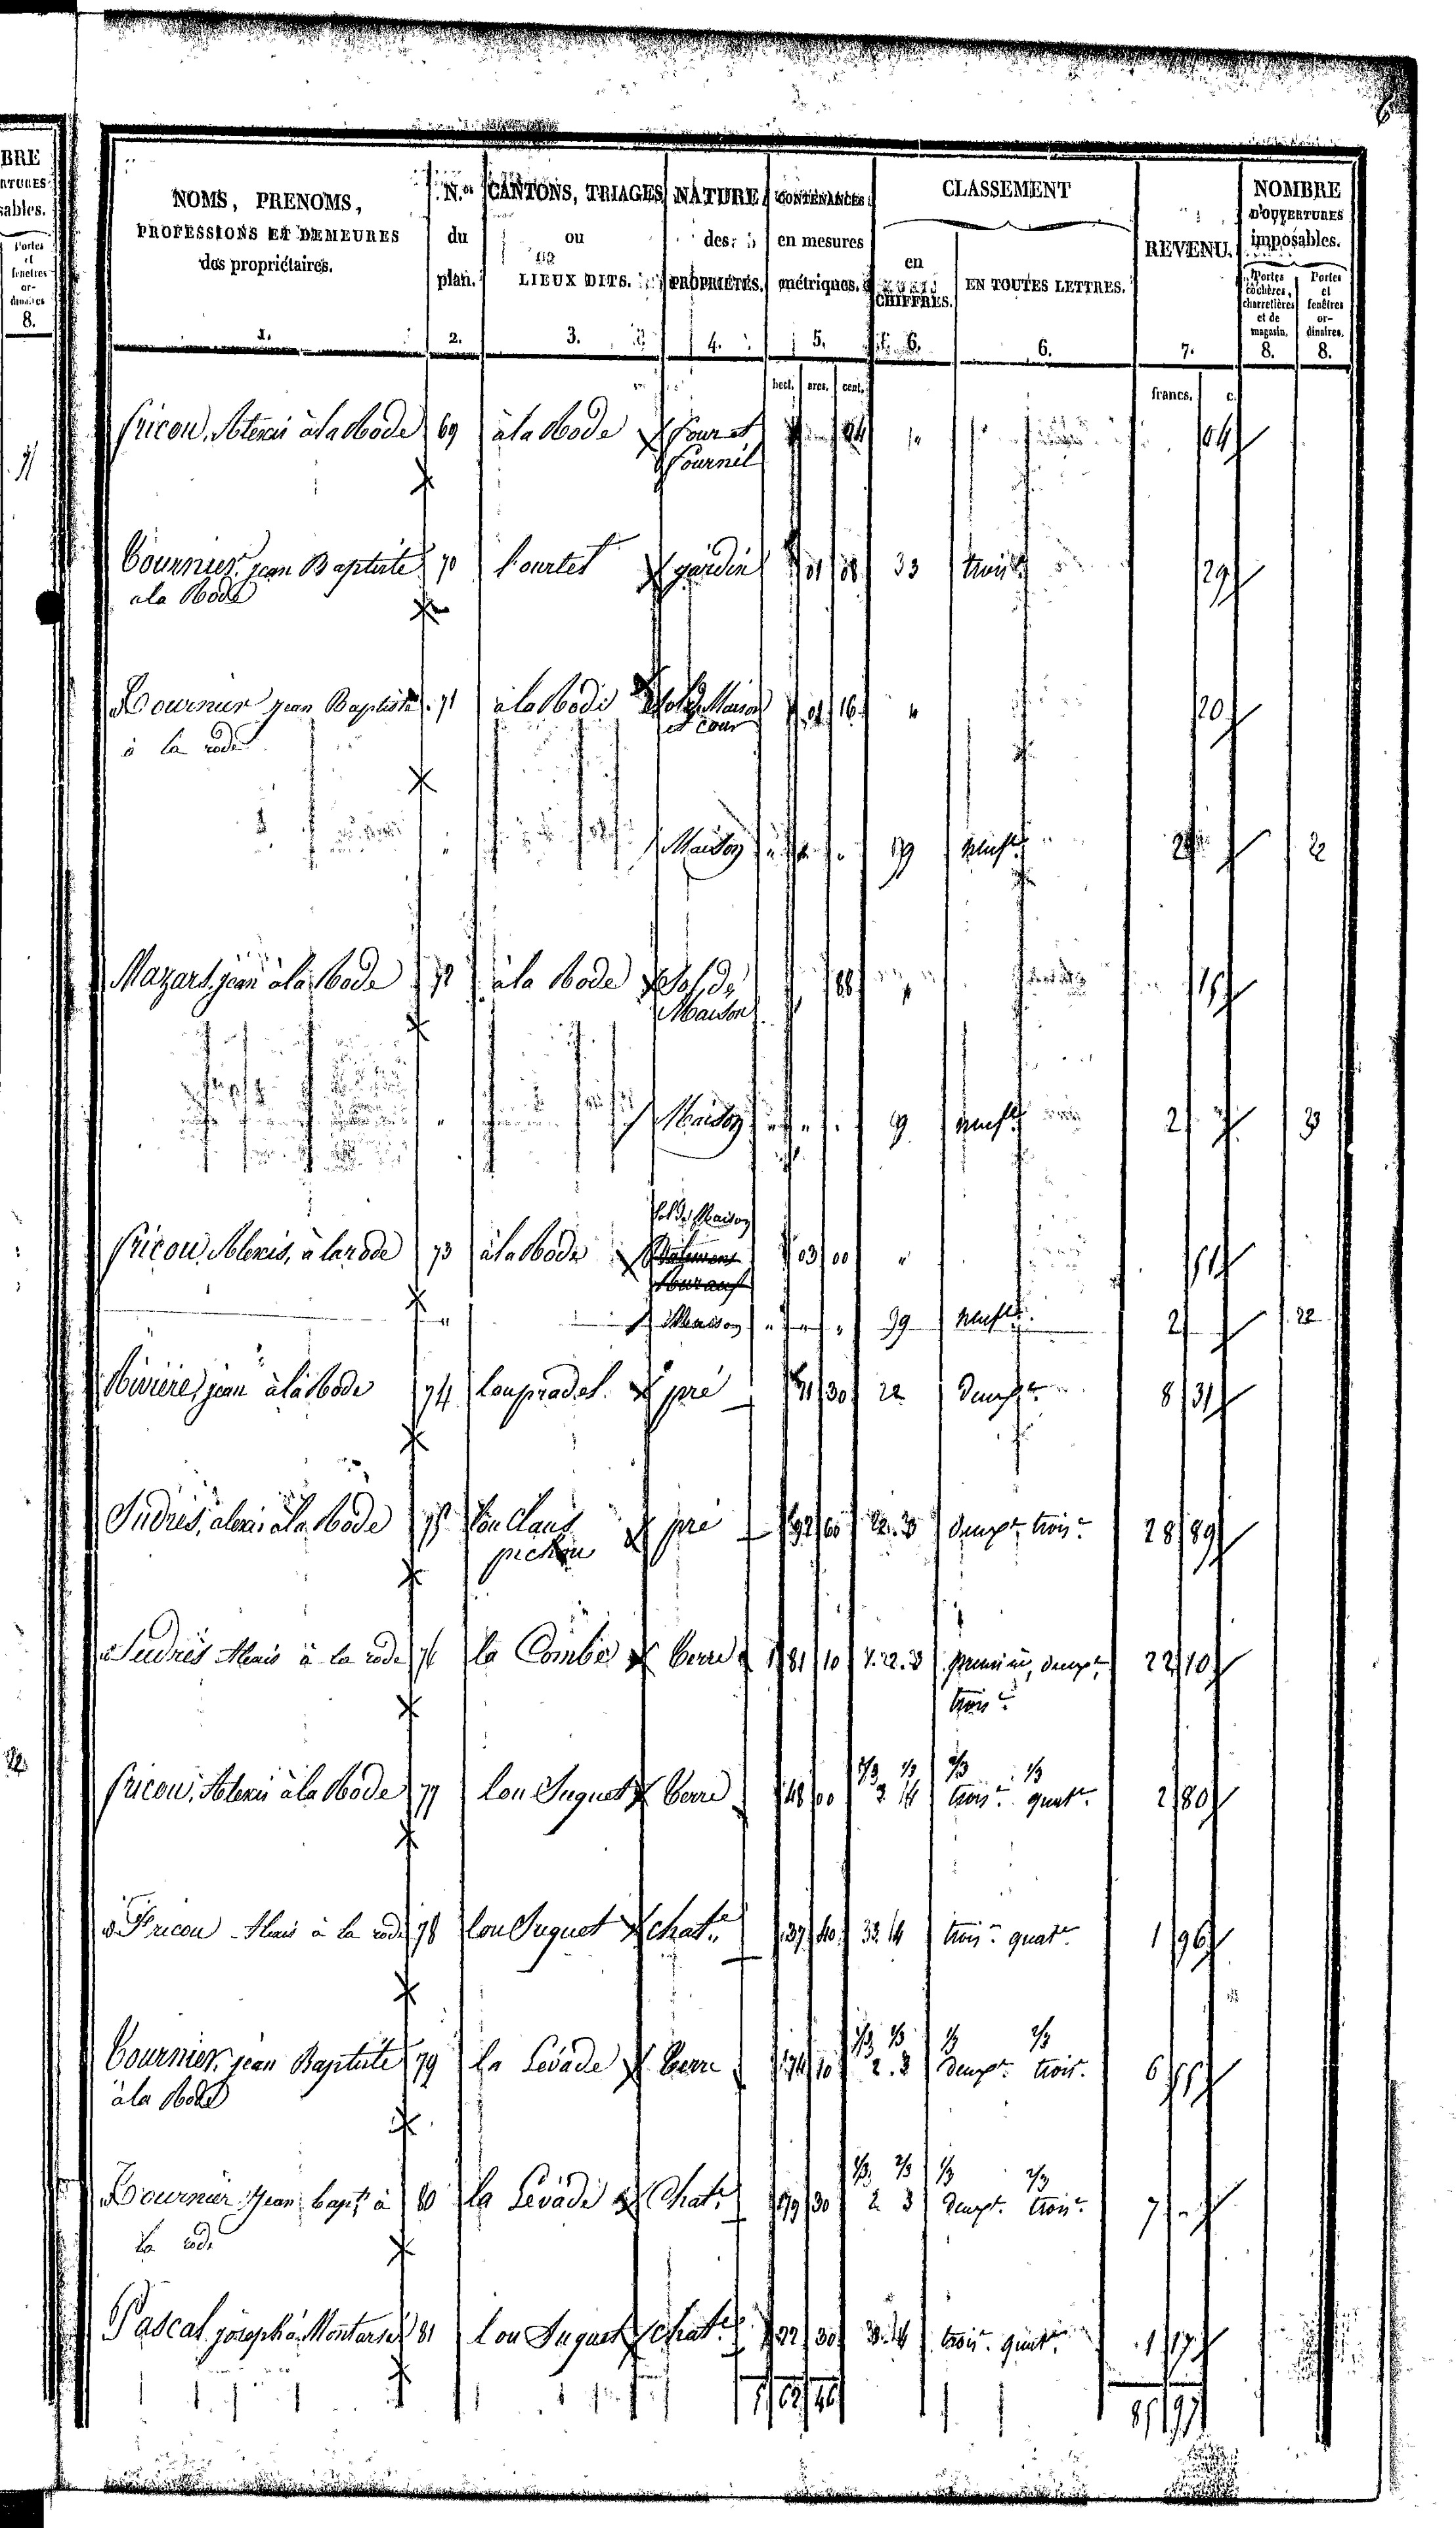 6
BRE
RTURES
sables.
Portes
et
fenêtres
or-
dinaires
8.
NOMS, PRENOMS,
PROFESSIONS ET DEMEURES
des propriétaires.
1.
N.os
du
plan.
2.
CANTONS, TRIAGES
ou
LIEUX DITS.
3.
NATURE
des
PROPRIÉTÉS.
4.
CONTENANCES
en mesures
métriques.
5.
CLASSEMENT
en
CHIFFRES.
6.
EN TOUTES LETTRES.
6.
REVENU.
7.
NOMBRE
D'OUVERTURES
imposables.
Portes
cochères,
charretières
et de
magasin.
8.
Portes
et
fenêtres
or-
dinaires.
8.
hect. ares. cent. francs. c.
fricou, Alexis à la Rode 69 à la Rode four et 04
fournil
Tournier, jean Baptiste 70 l'ourtet jardin 01 08 33 trois.e 29
a la Rode
Tournier jean Baptiste 71 à la Rode Sol de Maison 01 16 " 20
à la rode et cour
" Maison " " " 9 neuf.e 2 2
Mazars, jean à la Rode 72 à la Rode Sol de 88 " 15
Maison
" Maison " " " 9 neuf.e 2 3
Sol de Maison
fricou, Alexis, à la rode 73 à la Rode Batiment 03 00 " 51
" Maison " " " 9 neuf.e 2 2
Rivière, jean à la Rode 74 lou pradel pré 21 30 2 deux.e 8 31
Sudres, alexis à la Rode 75 lou Claus pré 92 60 2.3 deux.e trois.e 28 89
pichou
Sudres Alexis à la rode 76 la Combe terre 1 81 10 1.2.3 première, deux.e 22 10
trois.e
2/3 1/3 2/3 1/3
fricou, Alexis à la Rode 77 lou Suquet terre 48 00 3 4 trois.e quat.e 2 80
Fricou Alexis à la rode 78 lou Suquet chat.e 37 40 3.4 trois.e quat.e 1 96
1/3 2/3 1/3 2/3
Tournier, jean Baptiste 79 la Levade terre 74 10 2.3 deux.e trois.e 6 55
à la Rode
1/3 2/3 1/3 2/3
Tournier Jean bapt.e à 80 la Levade Chat.e 79 30 2 3 deux.e trois.e 7 "
la rode
Pascal joseph à Montarsé 81 lou Suquet chat.e 22 30 3.4 trois.e quat.e 1 17
5 62 46 85 97